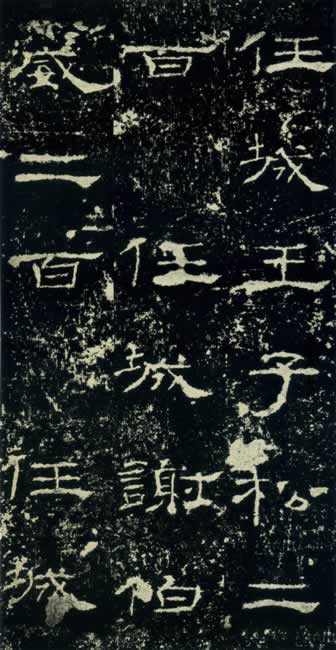 任城王子松二
百任城謝伯
威二百任城